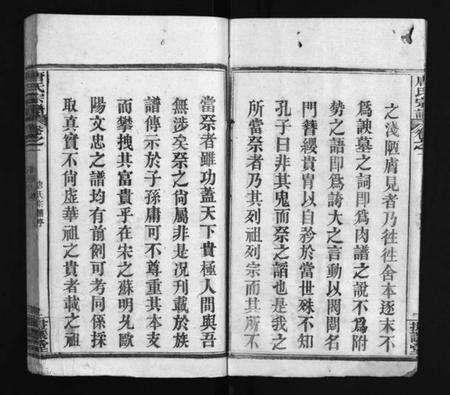 之淺陋膚見者乃徃徃舍本逐末不
爲諛墓之詞即爲肉譜之說不爲附
勢之語即爲誇大之言動以閥閱名
門簪纓貴胄以自矜於當世殊不知
孔子曰非其鬼而祭之謟也是我之
所當祭者乃其列祖列宗而其所不
當祭者雖功蓋天下貴極人間與吾
無涉矣祭之尙屬非是况刊載於族
譜傳示於子孫庸可不尊重其本支
而攀拽其富貴乎在宋之蘇明允歐
陽文忠之譜均有前例可考同係採
取真實不尙虛華祖之貴者載之祖
唐氏宗譜卷之一